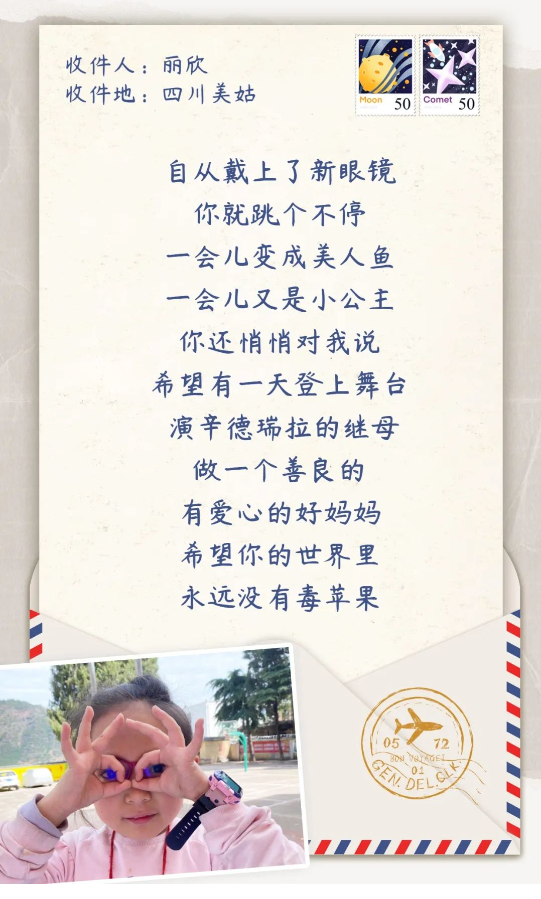 收件人：丽欣
收件地：四川美姑
Moon 50
Comet 50
自从戴上了新眼镜
你就跳个不停
一会儿变成美人鱼
一会儿又是小公主
你还悄悄对我说
希望有一天登上舞台
演辛德瑞拉的继母
做一个善良的
有爱心的好妈妈
希望你的世界里
永远没有毒苹果
05 72
BON VOYAGE!
01
GEN. DEL. CLK.